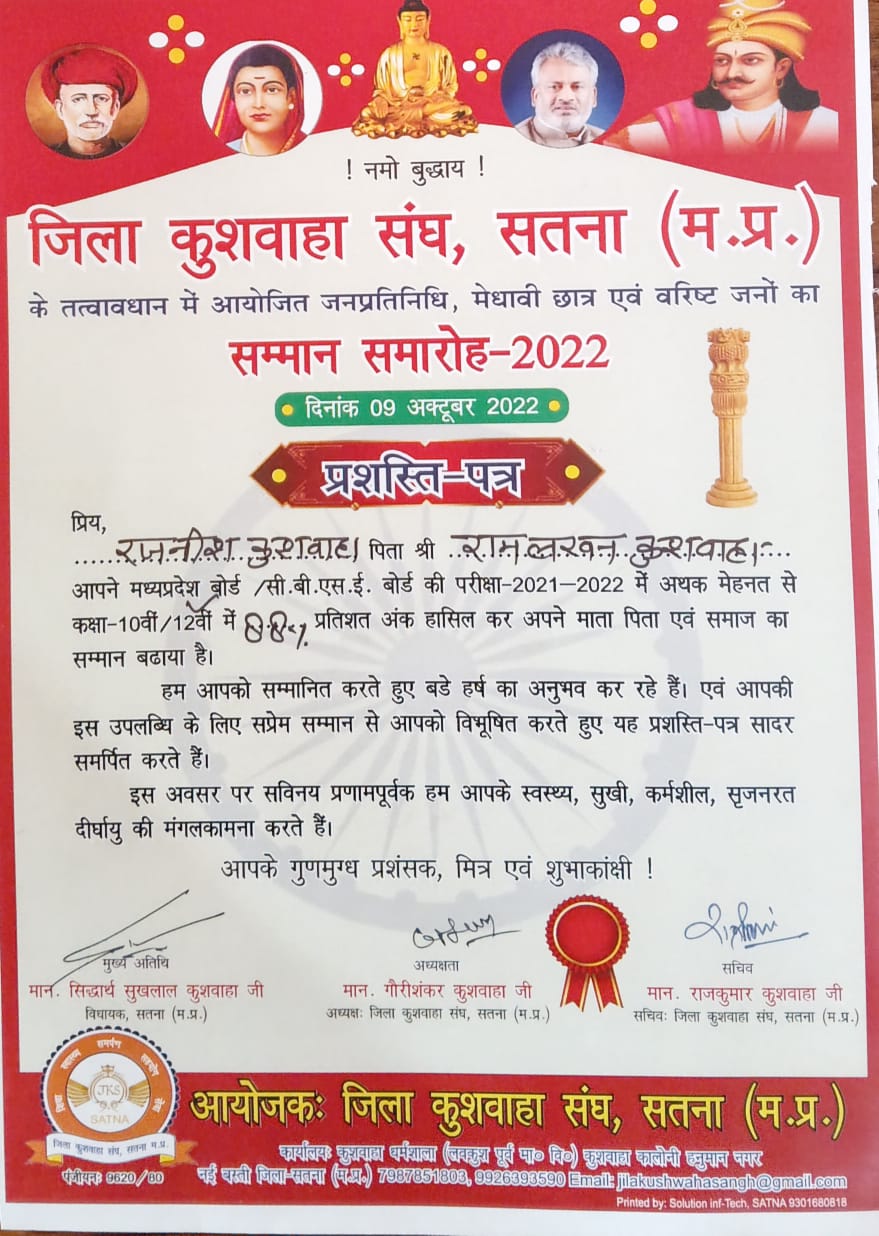 ! नमो बुद्धाय !
जिला कुशवाहा संघ, सतना (म.प्र.)
के तत्वावधान में आयोजित जनप्रतिनिधि, मेधावी छात्र एवं वरिष्ट जनों का
सम्मान समारोह-2022
दिनांक 09 अक्टूबर 2022
प्रशस्ति-पत्र
प्रिय,
......रजनीश कुशवाहा पिता श्री ..रामलखन कुशवाहा....
आपने मध्यप्रदेश बोर्ड /सी.बी.एस.ई. बोर्ड की परीक्षा-2021-2022 में अथक मेहनत से
कक्षा-10वीं/12वीं में 88% प्रतिशत अंक हासिल कर अपने माता पिता एवं समाज का
सम्मान बढाया है।
हम आपको सम्मानित करते हुए बडे हर्ष का अनुभव कर रहे हैं। एवं आपकी
इस उपलब्धि के लिए सप्रेम सम्मान से आपको विभूषित करते हुए यह प्रशस्ति-पत्र सादर
समर्पित करते हैं।
इस अवसर पर सविनय प्रणामपूर्वक हम आपके स्वस्थ्य, सुखी, कर्मशील, सृजनरत
दीर्घायु की मंगलकामना करते हैं।
आपके गुणमुग्ध प्रशंसक, मित्र एवं शुभाकांक्षी !
मुख्य अतिथि अध्यक्षता सचिव
मान. सिद्धार्थ सुखलाल कुशवाहा जी मान. गौरीशंकर कुशवाहा जी मान. राजकुमार कुशवाहा जी
विधायक, सतना (म.प्र.) अध्यक्षः जिला कुशवाहा संघ, सतना (म.प्र.) सचिवः जिला कुशवाहा संघ, सतना (म.प्र.)
शिक्षा स्वास्थ्य समर्पण सहयोग सेवा
JKS
SATNA
जिला कुशवाहा संघ, सतना म.प्र.
पंजीयनः 9620/80
आयोजकः जिला कुशवाहा संघ, सतना (म.प्र.)
कार्यालयः कुशवाहा धर्मशाला (लवकुश पूर्व मा० वि०) कुशवाहा कालोनी हनुमान नगर
नई बस्ती जिला-सतना (म.प्र.) 7987851803, 9926393590 Email: jilakushwahasangh@gmail.com
Printed by: Solution inf-Tech, SATNA 9301680818